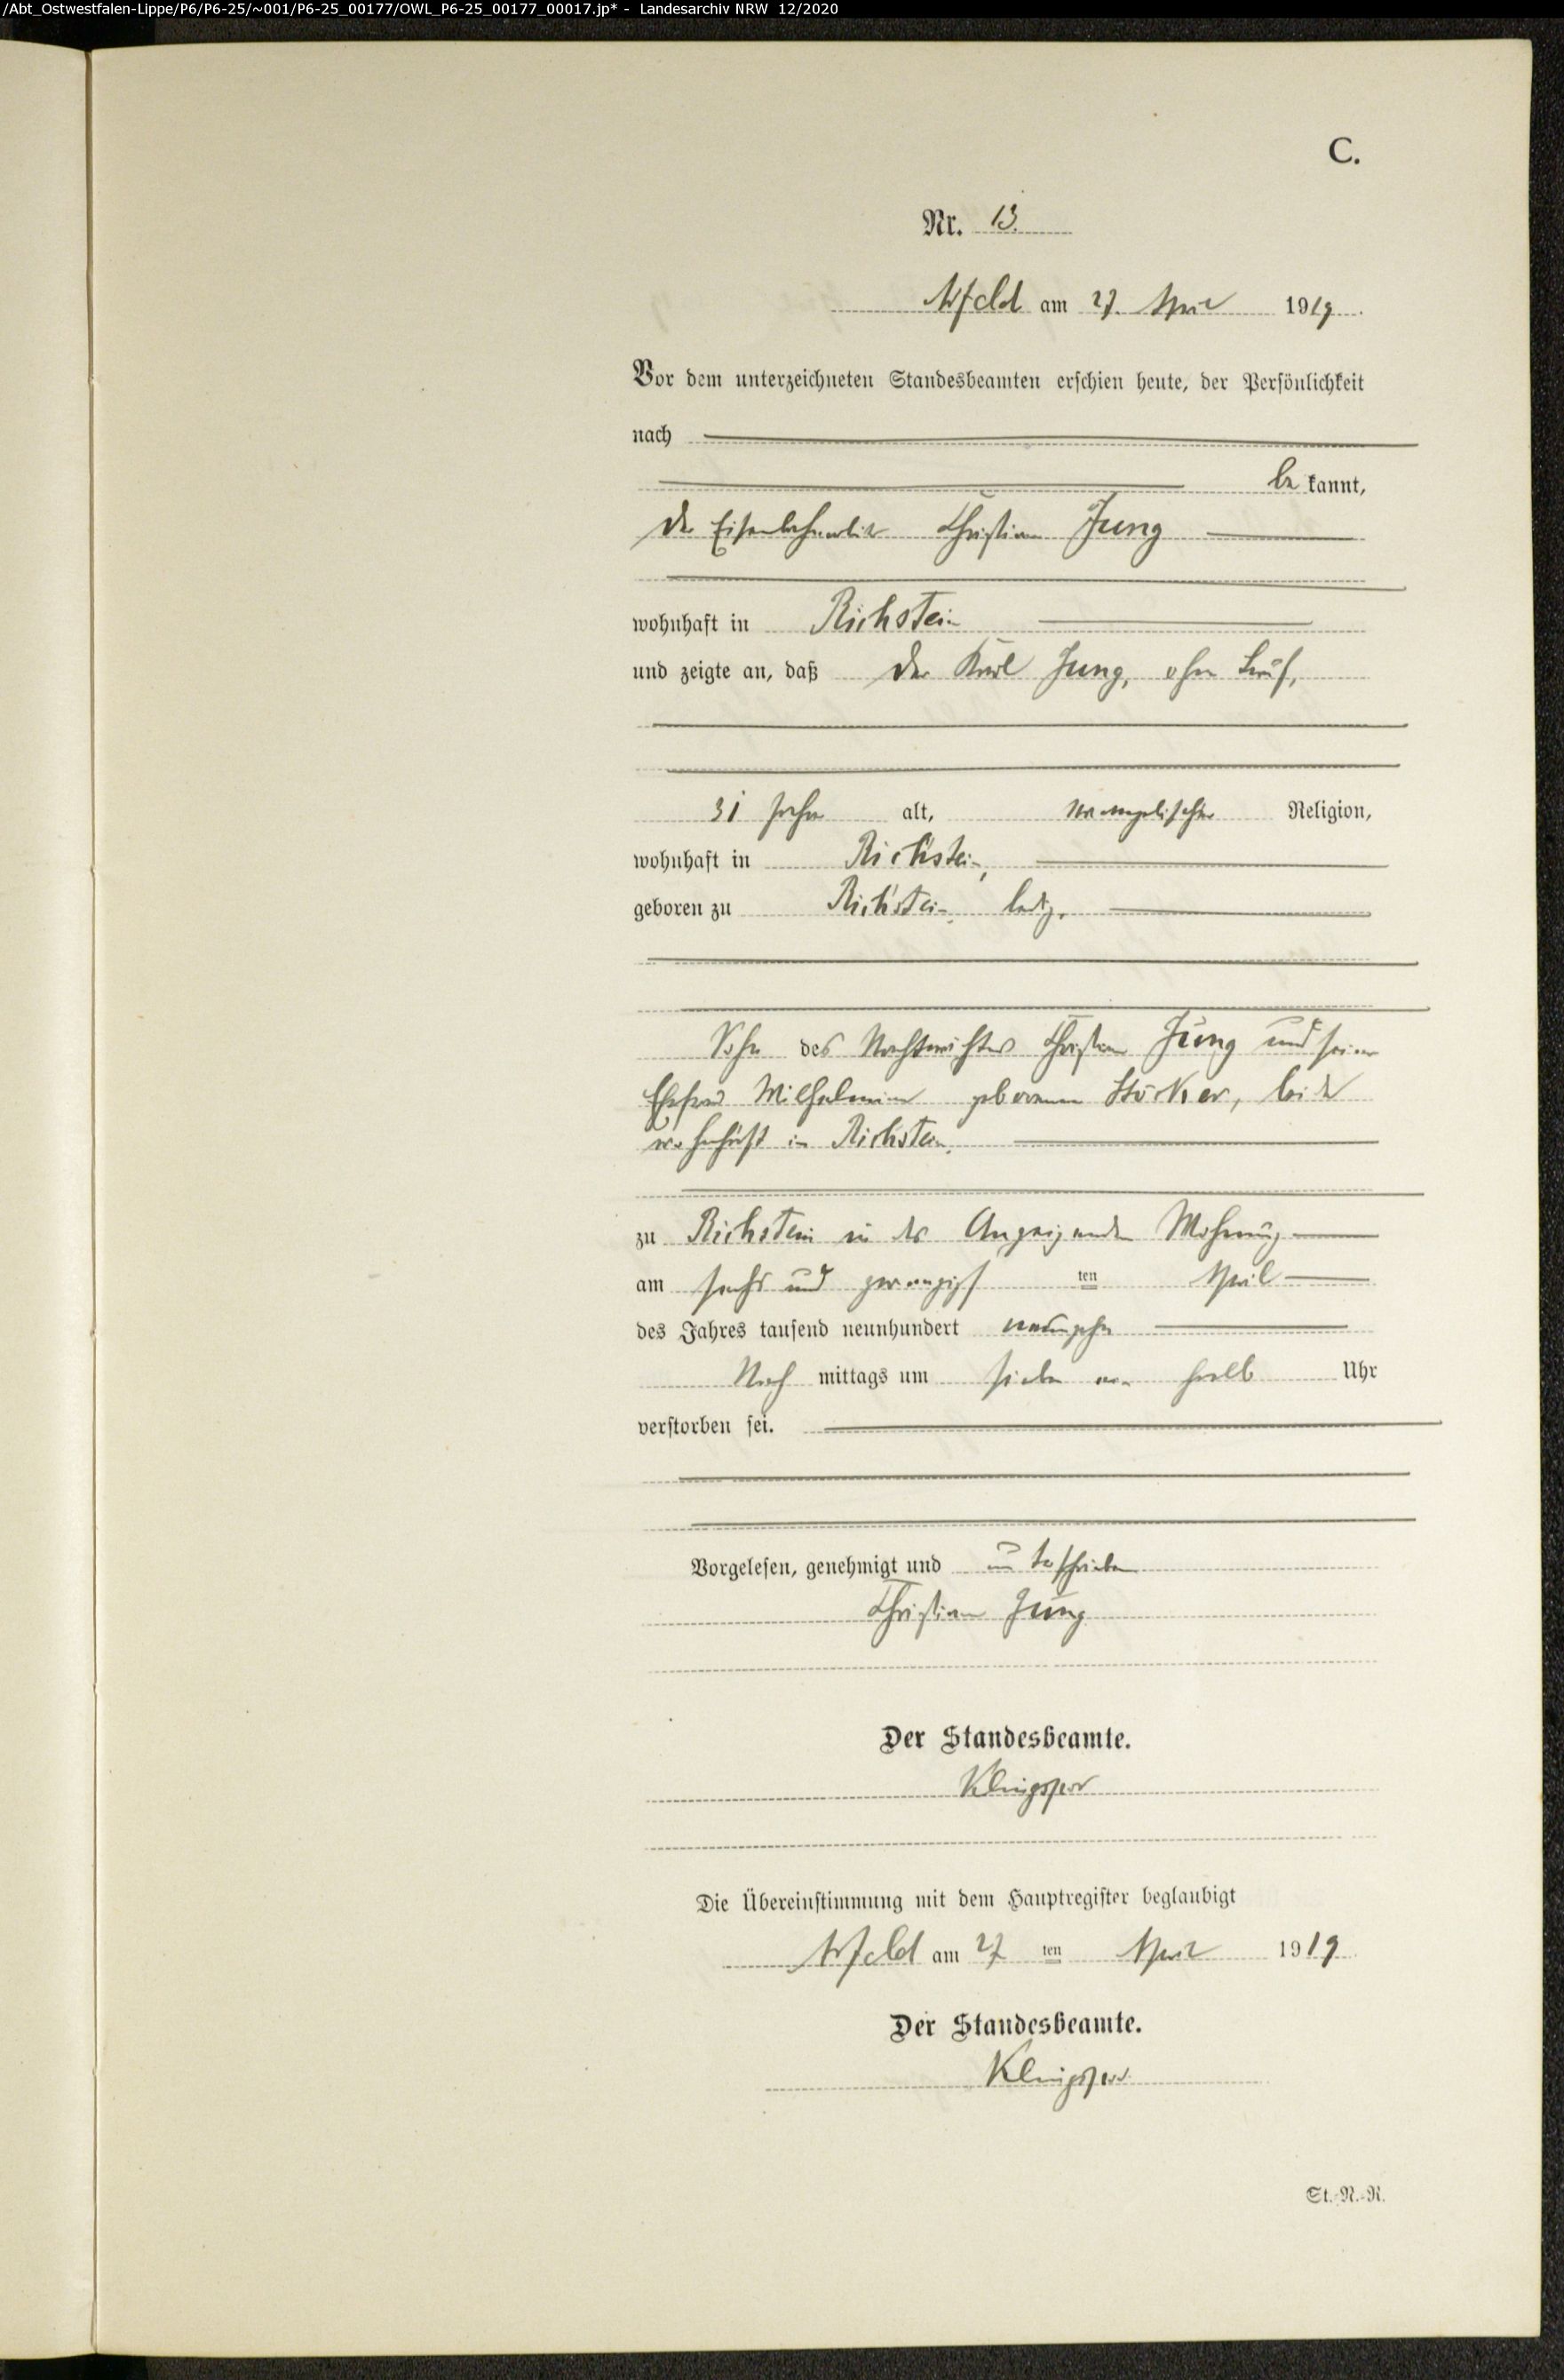 /Abt_Ostwestfalen-Lippe/P6/P6-25/~001/P6-25_00177/OWL_P6-25_00177_00017.jp* - Landesarchiv NRW 12/2020
C.
Nr. 13.
Arfeld am 27. April 1919.
Vor dem unterzeichneten Standesbeamten erschien heute, der Persönlichkeit
nach
be kannt,
der Eisenbahnarbeiter Christian Jung
wohnhaft in Richstein
und zeigte an, daß der Karl Jung, ohne Beruf,
31 Jahre alt, evangelischer Religion,
wohnhaft in Richstein,
geboren zu Richstein, ledig,
Sohn des Christian Jung und seiner
Ehefrau Wilhelmine geborenen Stöcker, beide
wohnhaft in Richstein,
zu Richstein in des Anzeigenden Wohnung
am sechs und zwanzigsten April
des Jahres tausend neunhundert neunzehn
Nach mittags um sieben ein halb Uhr
verstorben sei.
Vorgelesen, genehmigt und unterschrieben
Christian Jung
Der Standesbeamte.
Klingspor
Die Übereinstimmung mit dem Hauptregister beglaubigt
Arfeld am 27 ten April 1919.
Der Standesbeamte.
Klingspor
St.-N.-R.